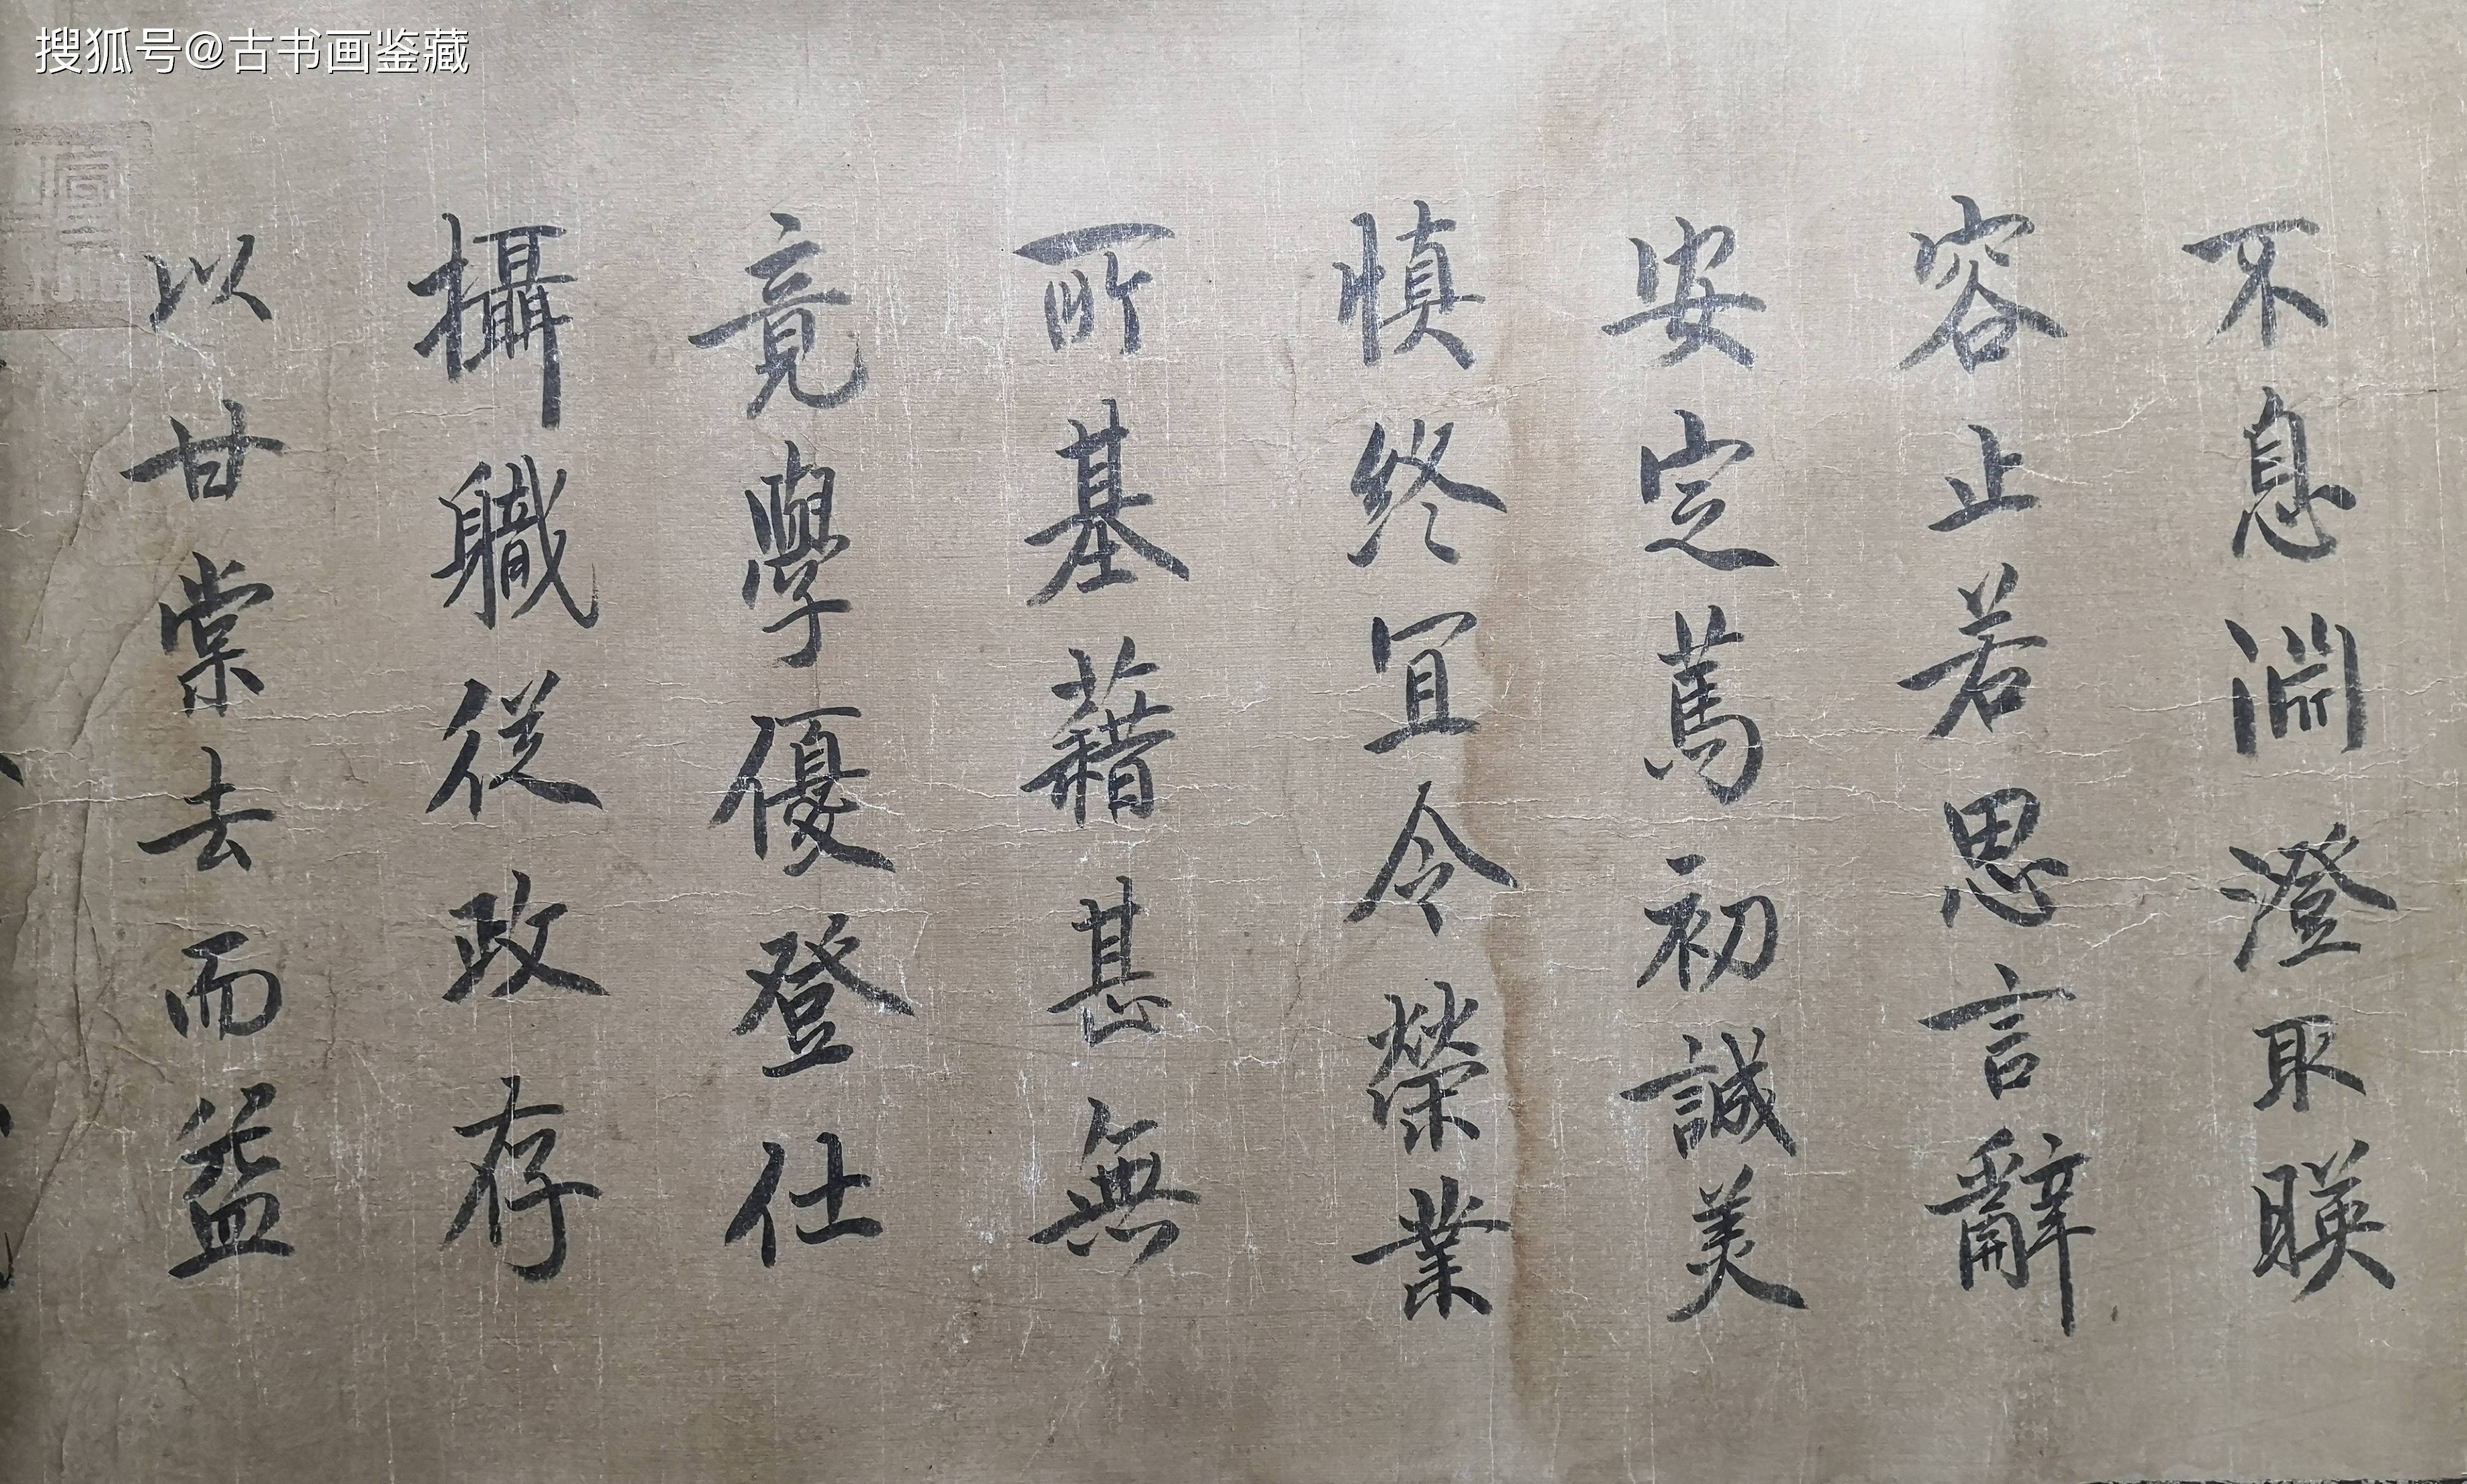 搜狐号@古书画鉴藏
不息淵澄取暎
容止若思言辭
安定篤初誠美
慎終宜令榮業
所基藉甚無
竟學優登仕
攝職從政存
以甘棠去而益